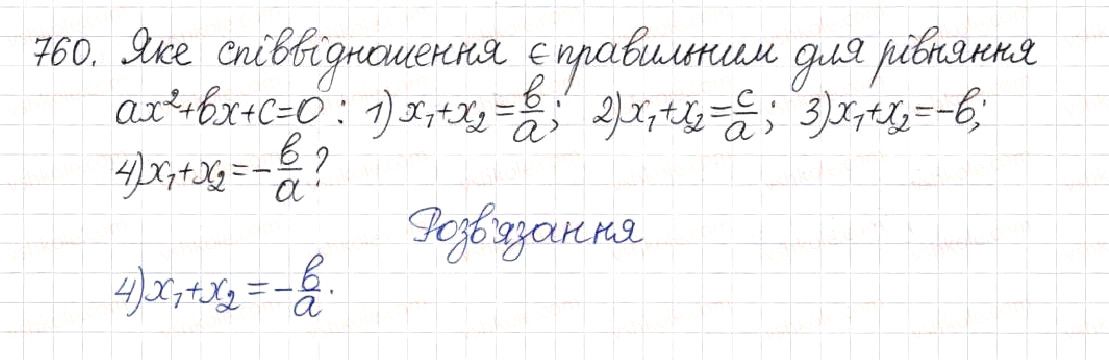 760. Яке співвідношення є правильним для рівняння
ax²+bx+c=0 : 1) x₁+x₂ = b/a; 2) x₁+x₂ = c/a; 3) x₁+x₂ = -b;
4) x₁+x₂ = -b/a?
Розв'язання
4) x₁+x₂ = -b/a.